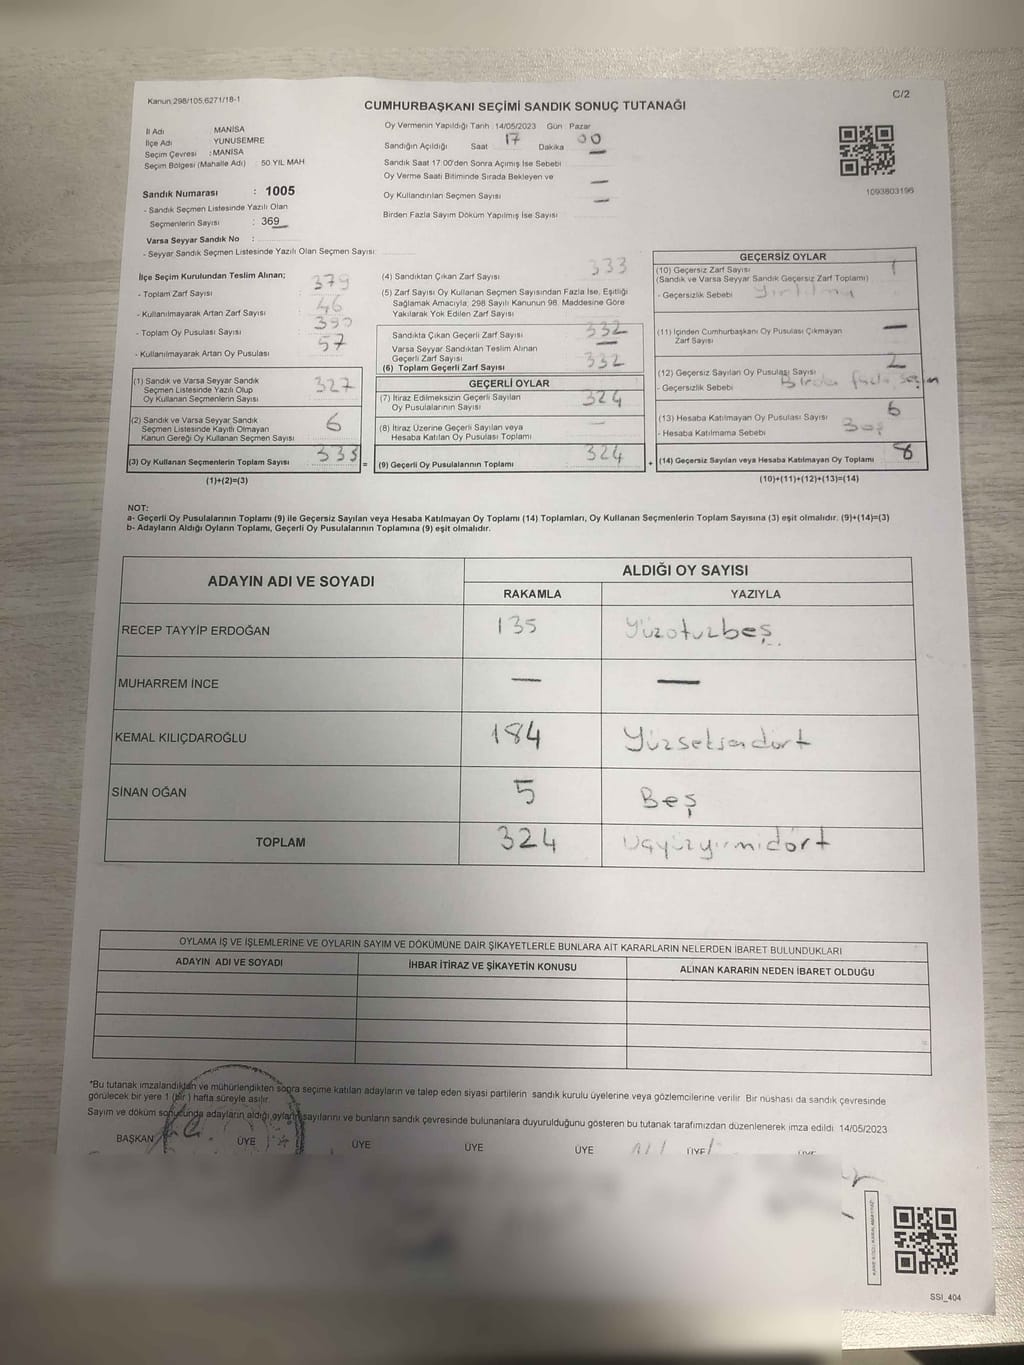 Kanun 298/105,6271/18-1
C/2
CUMHURBAŞKANI SEÇİMİ SANDIK SONUÇ TUTANAĞI
İl Adı : MANİSA
İlçe Adı : YUNUSEMRE
Seçim Çevresi : MANİSA
Seçim Bölgesi (Mahalle Adı) : 50 YIL MAH
Sandık Numarası : 1005
- Sandık Seçmen Listesinde Yazılı Olan
Seçmenlerin Sayısı : 369
Varsa Seyyar Sandık No :
- Seyyar Sandık Seçmen Listesinde Yazılı Olan Seçmen Sayısı:
Oy Vermenin Yapıldığı Tarih :14/05/2023 Gün : Pazar
Sandığın Açıldığı Saat 17 Dakika 00
Sandık Saat 17:00'den Sonra Açımış İse Sebebi
Oy Verme Saati Bitiminde Sırada Bekleyen ve —
Oy Kullandırılan Seçmen Sayısı —
Birden Fazla Sayım Döküm Yapılmış İse Sayısı
1093803196
İlçe Seçim Kurulundan Teslim Alınan;
- Toplam Zarf Sayısı : 379
- Kullanılmayarak Artan Zarf Sayısı : 46
- Toplam Oy Pusulası Sayısı : 390
- Kullanılmayarak Artan Oy Pusulası : 57
(1) Sandık ve Varsa Seyyar Sandık
Seçmen Listesinde Yazılı Olup
Oy Kullanan Seçmenlerin Sayısı 327
(2) Sandık ve Varsa Seyyar Sandık
Seçmen Listesinde Kayıtlı Olmayan
Kanun Gereği Oy Kullanan Seçmen Sayısı 6
(3) Oy Kullanan Seçmenlerin Toplam Sayısı 333
(1)+(2)=(3)
(4) Sandıktan Çıkan Zarf Sayısı 333
(5) Zarf Sayısı Oy Kullanan Seçmen Sayısından Fazla İse, Eşitliği
Sağlamak Amacıyla, 298 Sayılı Kanunun 98. Maddesine Göre
Yakılarak Yok Edilen Zarf Sayısı
Sandıkta Çıkan Geçerli Zarf Sayısı 332
Varsa Seyyar Sandıktan Teslim Alınan
Geçerli Zarf Sayısı —
(6) Toplam Geçerli Zarf Sayısı 332
GEÇERLİ OYLAR
(7) İtiraz Edilmeksizin Geçerli Sayılan
Oy Pusulalarının Sayısı 324
(8) İtiraz Üzerine Geçerli Sayılan veya
Hesaba Katılan Oy Pusulası Toplamı —
= (9) Geçerli Oy Pusulalarının Toplamı 324
GEÇERSİZ OYLAR
(10) Geçersiz Zarf Sayısı 1
(Sandık ve Varsa Seyyar Sandık Geçersiz Zarf Toplamı)
- Geçersizlik Sebebi Yırtılma
(11) İçinden Cumhurbaşkanı Oy Pusulası Çıkmayan —
Zarf Sayısı
(12) Geçersiz Sayılan Oy Pusulası Sayısı 2
- Geçersizlik Sebebi Birden fazla seçim
(13) Hesaba Katılmayan Oy Pusulası Sayısı 6
- Hesaba Katılmama Sebebi Boş
+ (14) Geçersiz Sayılan veya Hesaba Katılmayan Oy Toplamı 8
(10)+(11)+(12)+(13)=(14)
NOT:
a- Geçerli Oy Pusulalarının Toplamı (9) ile Geçersiz Sayılan veya Hesaba Katılmayan Oy Toplamı (14) Toplamları, Oy Kullanan Seçmenlerin Toplam Sayısına (3) eşit olmalıdır. (9)+(14)=(3)
b- Adayların Aldığı Oyların Toplamı, Geçerli Oy Pusulalarının Toplamına (9) eşit olmalıdır.
ADAYIN ADI VE SOYADI
ALDIĞI OY SAYISI
RAKAMLA YAZIYLA
RECEP TAYYİP ERDOĞAN 135 Yüzotuzbeş
MUHARREM İNCE — —
KEMAL KILIÇDAROĞLU 184 Yüzseksendört
SİNAN OĞAN 5 Beş
TOPLAM 324 Üçyüzyirmidört
OYLAMA İŞ VE İŞLEMLERİNE VE OYLARIN SAYIM VE DÖKÜMÜNE DAİR ŞİKAYETLERLE BUNLARA AİT KARARLARIN NELERDEN İBARET BULUNDUKLARI
ADAYIN ADI VE SOYADI İHBAR İTİRAZ VE ŞİKAYETİN KONUSU ALINAN KARARIN NEDEN İBARET OLDUĞU
*Bu tutanak imzalandıktan ve mühürlendikten sonra seçime katılan adayların ve talep eden siyasi partilerin sandık kurulu üyelerine veya gözlemcilerine verilir. Bir nüshası da sandık çevresinde
görülecek bir yere 1 (bir) hafta süreyle asılır.
Sayım ve döküm sonucunda adayların aldığı oyların sayılarını ve bunların sandık çevresinde bulunanlara duyurulduğunu gösteren bu tutanak tarafımızdan düzenlenerek imza edildi. 14/05/2023
BAŞKAN ÜYE ÜYE ÜYE ÜYE ÜYE
SSI_404